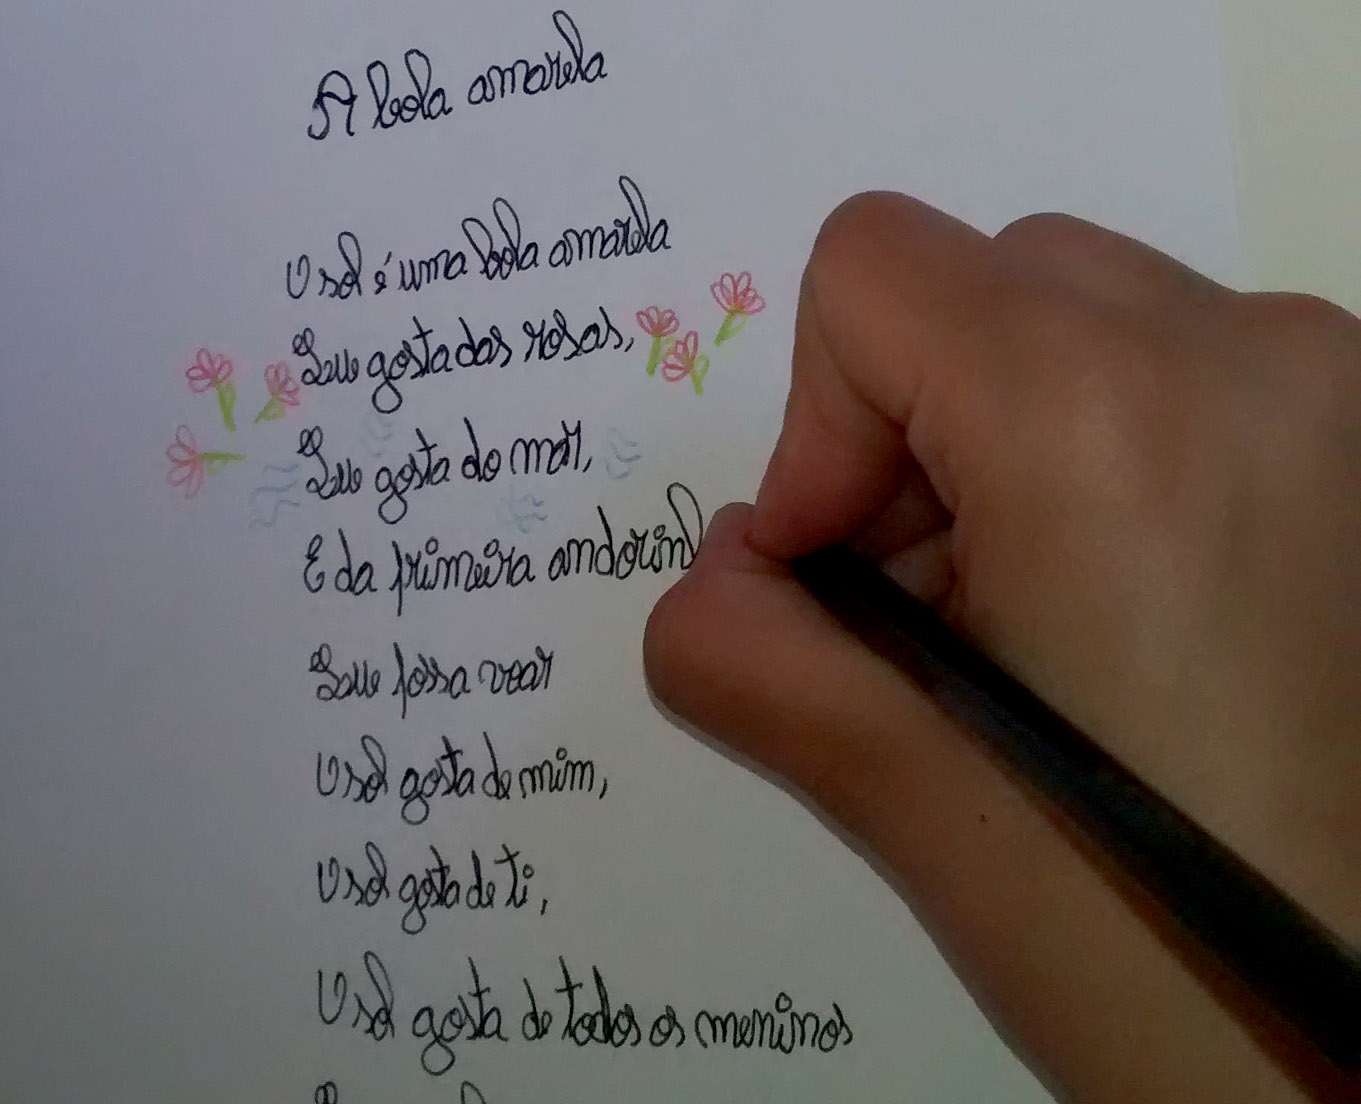 A bola amarela
O sol é uma bola amarela
Que gosta das rosas,
Que gosta do mar,
E da primeira andorinh
Que possa voar
O sol gosta de mim,
O sol gosta de ti,
O sol gosta de todos os meninos